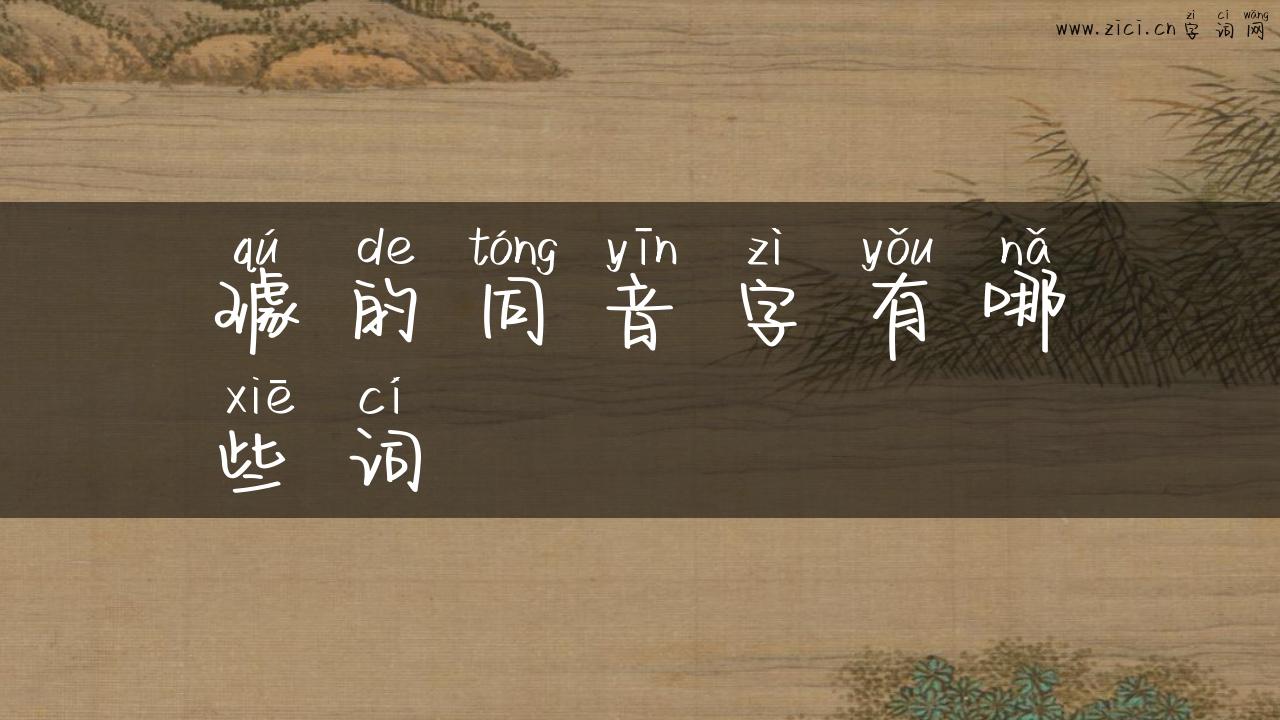 www.zici.cn 字词网
zì cí wǎng
qú de tóng yīn zì yǒu nǎ
璩的同音字有哪
xiē cí
些词